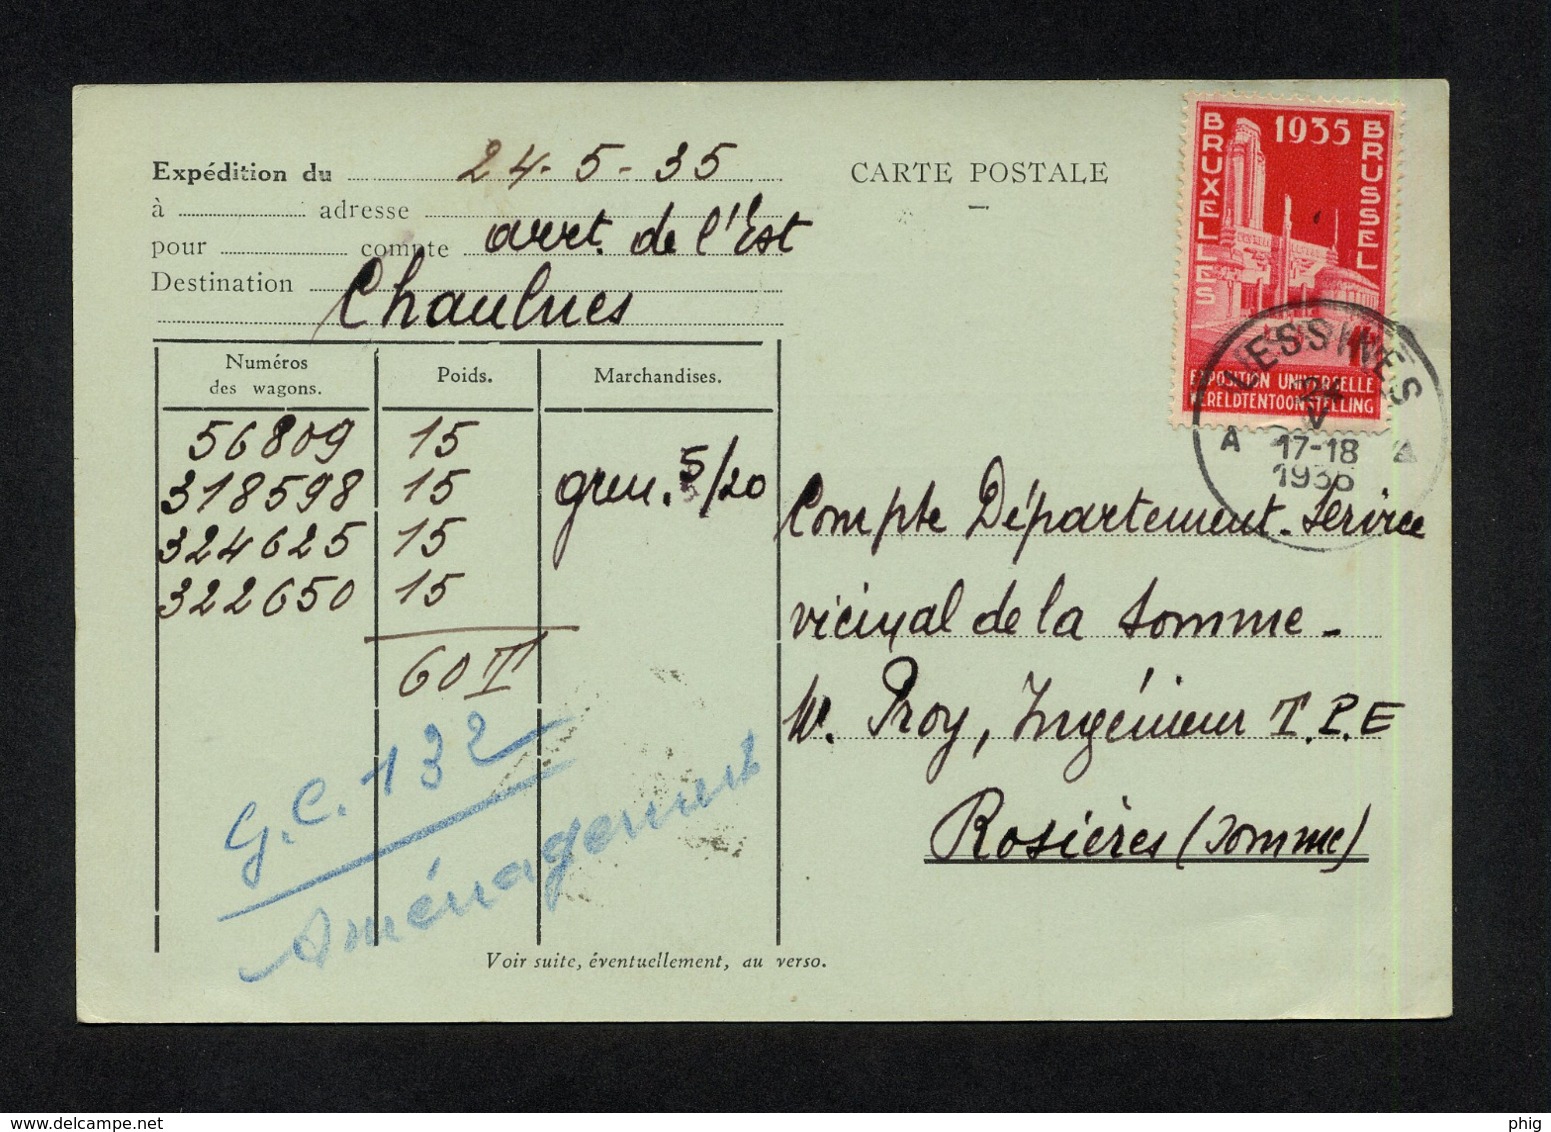 Expédition du 24-5-35
à adresse
pour compte arrt. de l'Est
Destination Chaulnes
CARTE POSTALE
BRUXELLES 1935 BRUSSEL
EXPOSITION UNIVERSELLE
WERELDTENTOONSTELLING
LESSINES
24
V
A 17-18 A
1935
Numéros des wagons. Poids. Marchandises.
56809 15
318598 15 gren. 5/20
324625 15
322650 15
60 T
G.C. 132
Aménagement
Compte Département-Service
vicinal de la Somme-
M. Proy, Ingénieur T.P.E
Rosières (Somme)
Voir suite, éventuellement, au verso.
phig